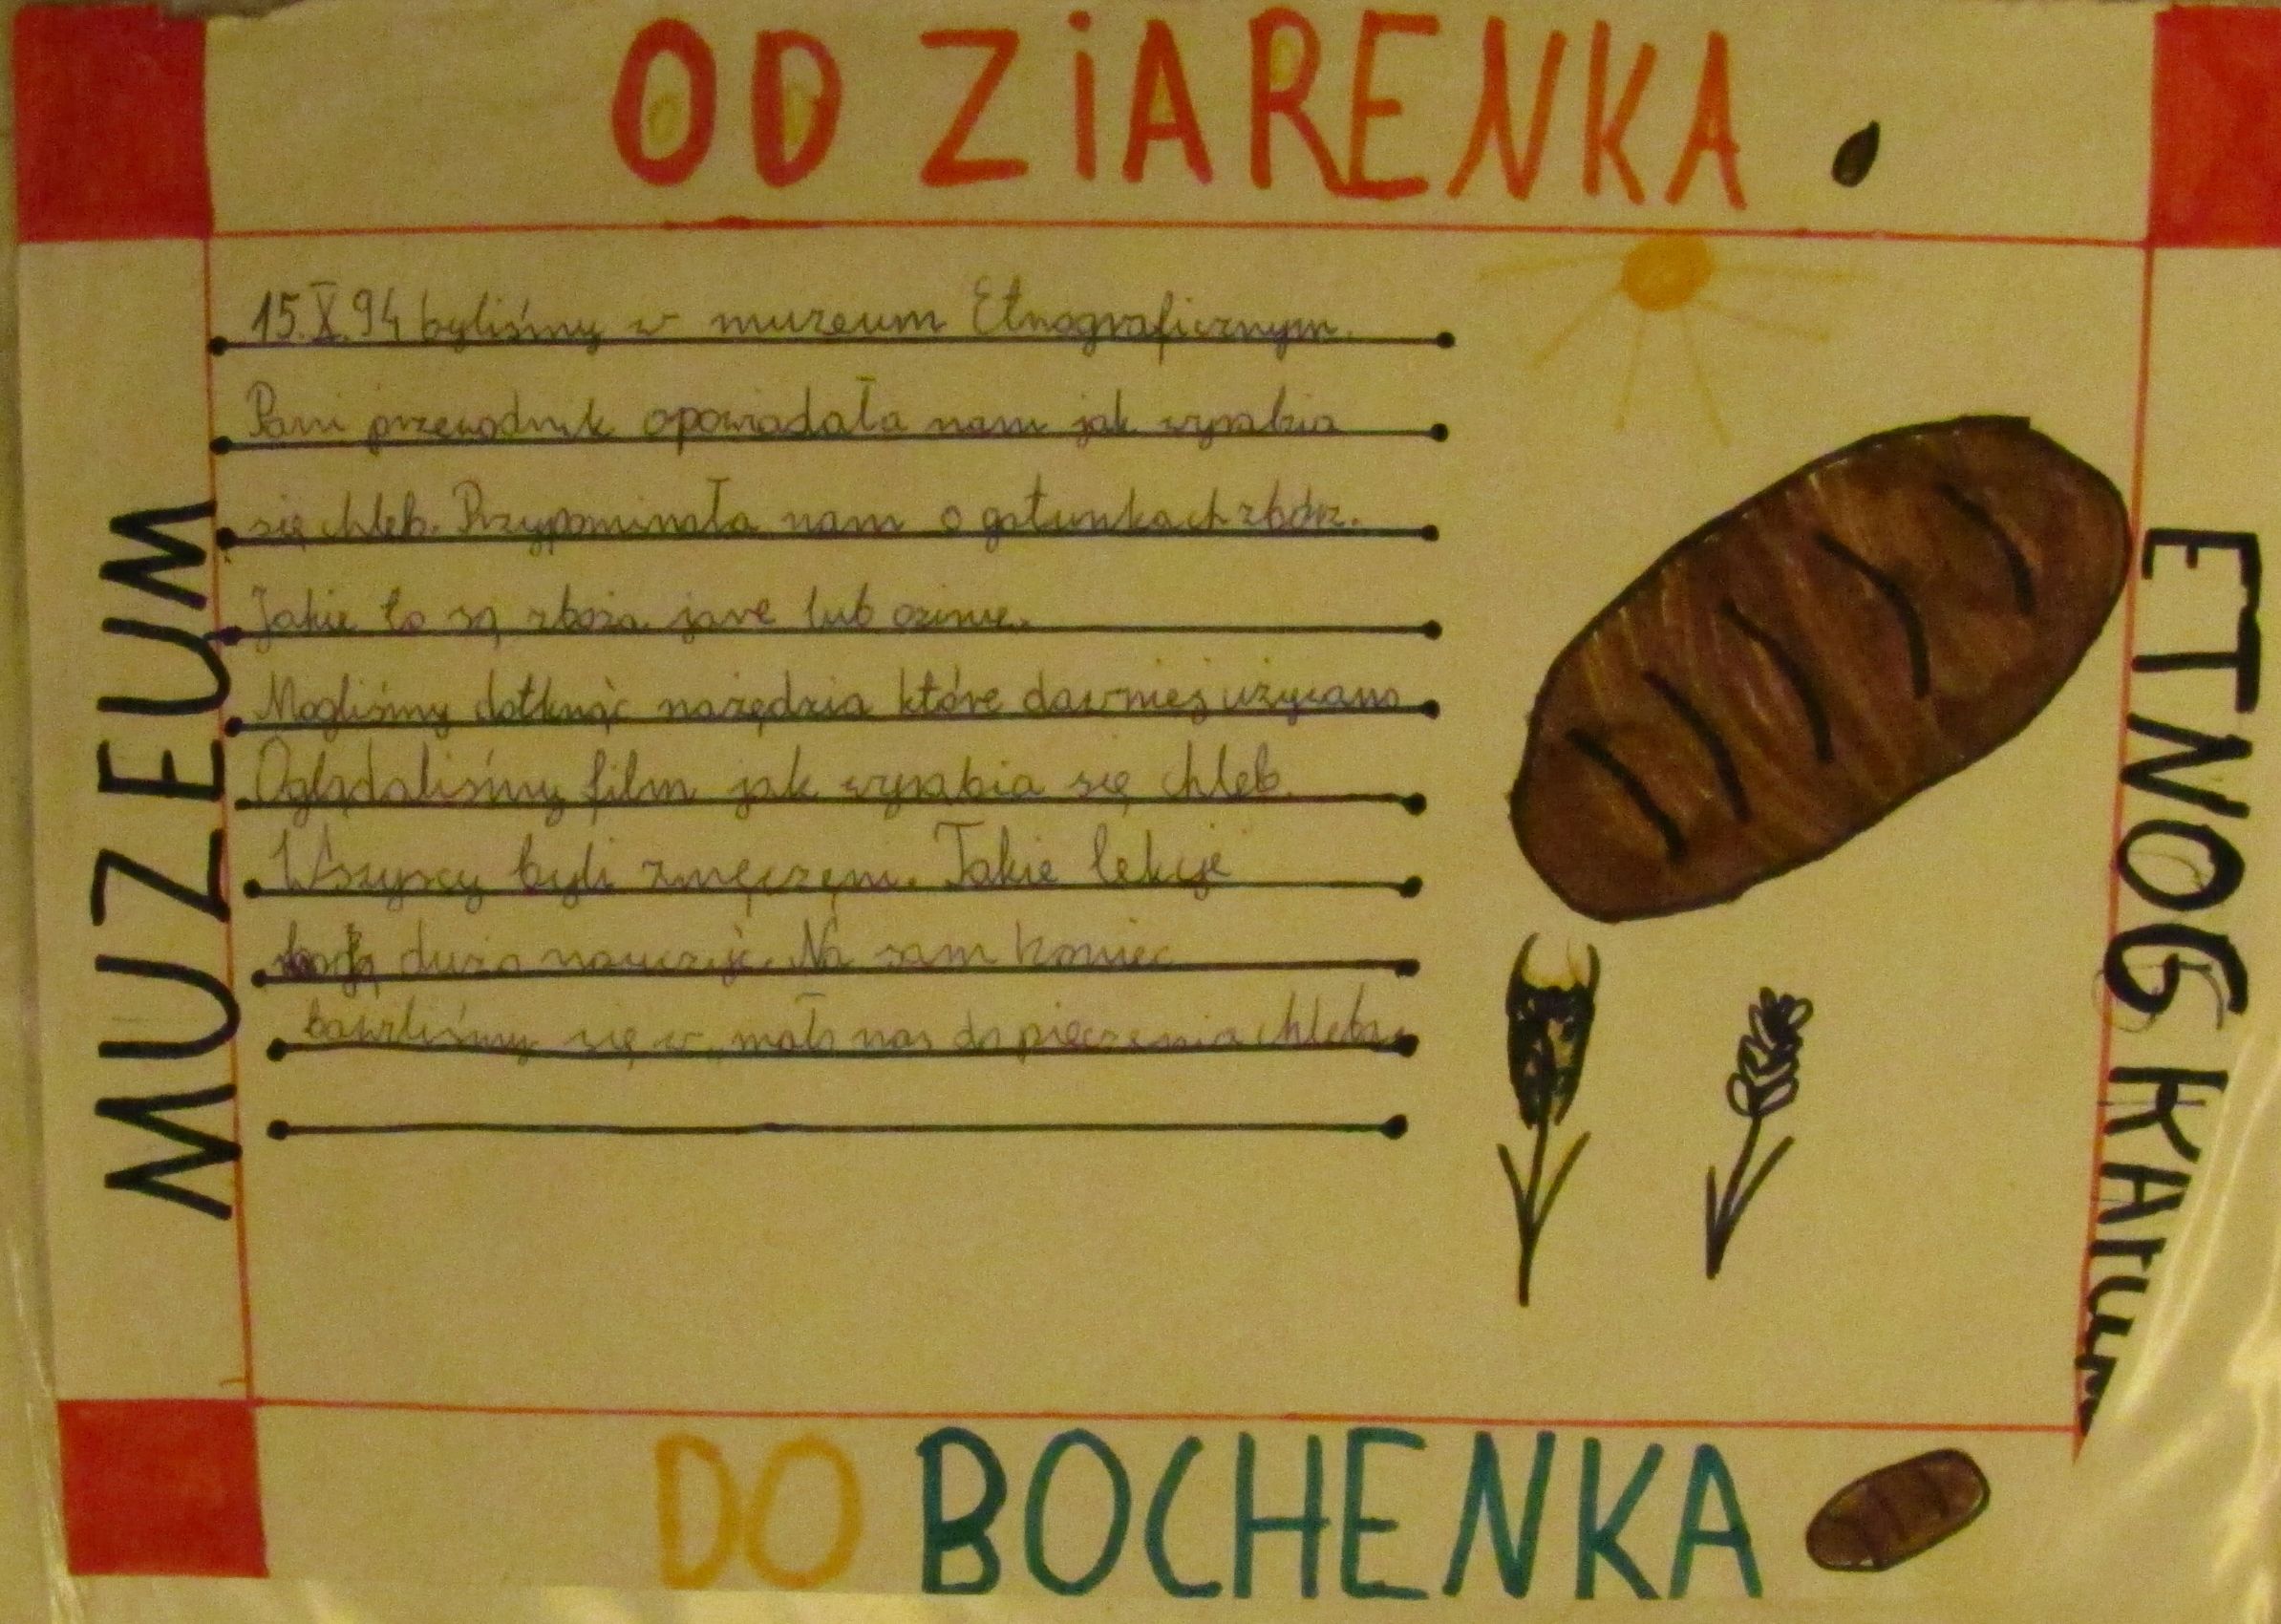 OD ZiARENKA
MUZEUM
15.X.94 byliśmy w muzeum Etnograficznym.
Pani przewodnik opowiadała nam jak wyrabia
się chleb. Przypominała nam o gatunkach zbórz.
Jakie to są zboża jare lub ozime.
Mogliśmy dotknąć nażędzia które dawniej używano
Oglądaliśmy film jak wyrabia się chleb.
Wszyscy byli zmęczęni. Takie lekcje
dużo nauczyć. Na sam koniec
bawiliśmy się w do pieczenia chleba.
ETNOG
DO BOCHENKA